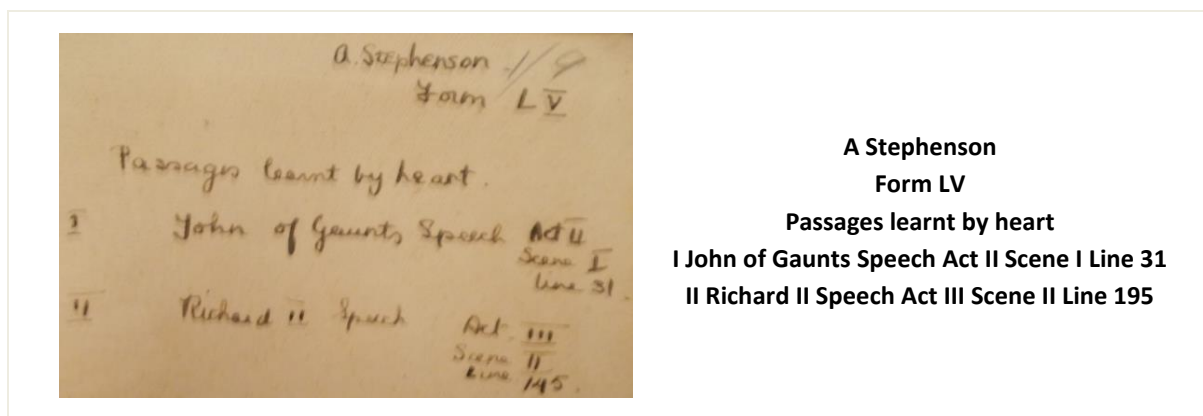 A. Stephenson
Form LV
Passages learnt by heart.
I John of Gaunts Speech Act II
Scene I
Line 31.
II Richard II Speech Act III
Scene II
Line 145.
A Stephenson
Form LV
Passages learnt by heart
I John of Gaunts Speech Act II Scene I Line 31
II Richard II Speech Act III Scene II Line 195